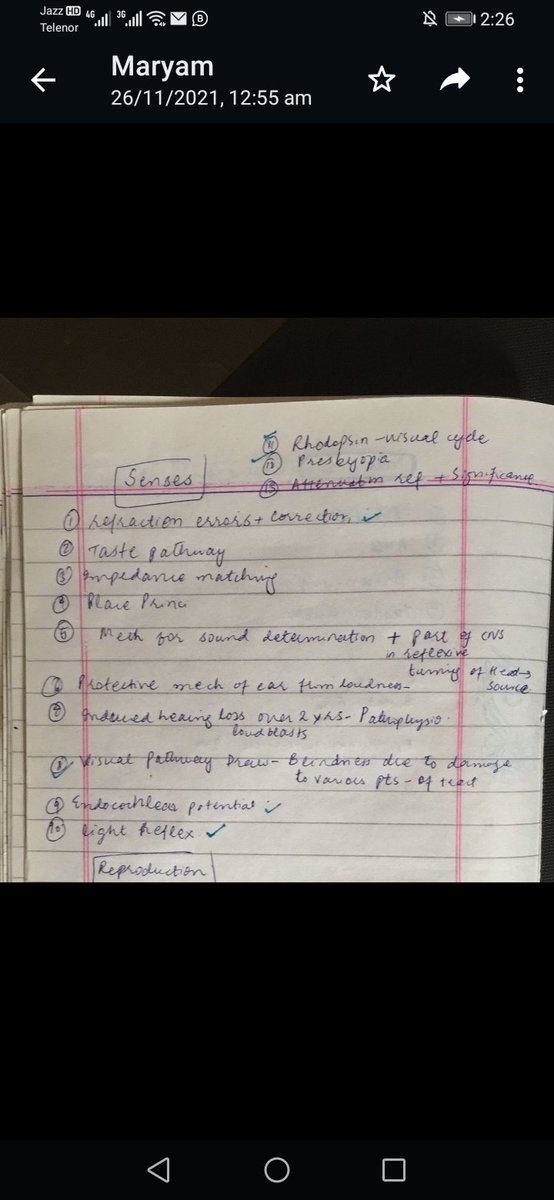 Jazz HD 4G 3G B 2:26
Telenor
Maryam
26/11/2021, 12:55 am
11 Rhodopsin - visual cycle
12 Presbyopia
13 Attenuation ref + Significance
Senses
1 refraction errors + correction ✓
2 Taste pathway
3 Impedance matching
4 Place Princi
5 Mech for sound determination + Part of CNS
in reflexive
turning of Head →
source
6 Protective mech of ear from loudness -
7 Induced hearing loss over 2 yrs - Pathophysio.
loud blasts
8 Visual Pathway Draw - Blindness due to damage
to various pts - of tract
9 Endocochlear potential ✓
10 light Reflex ✓
Reproduction